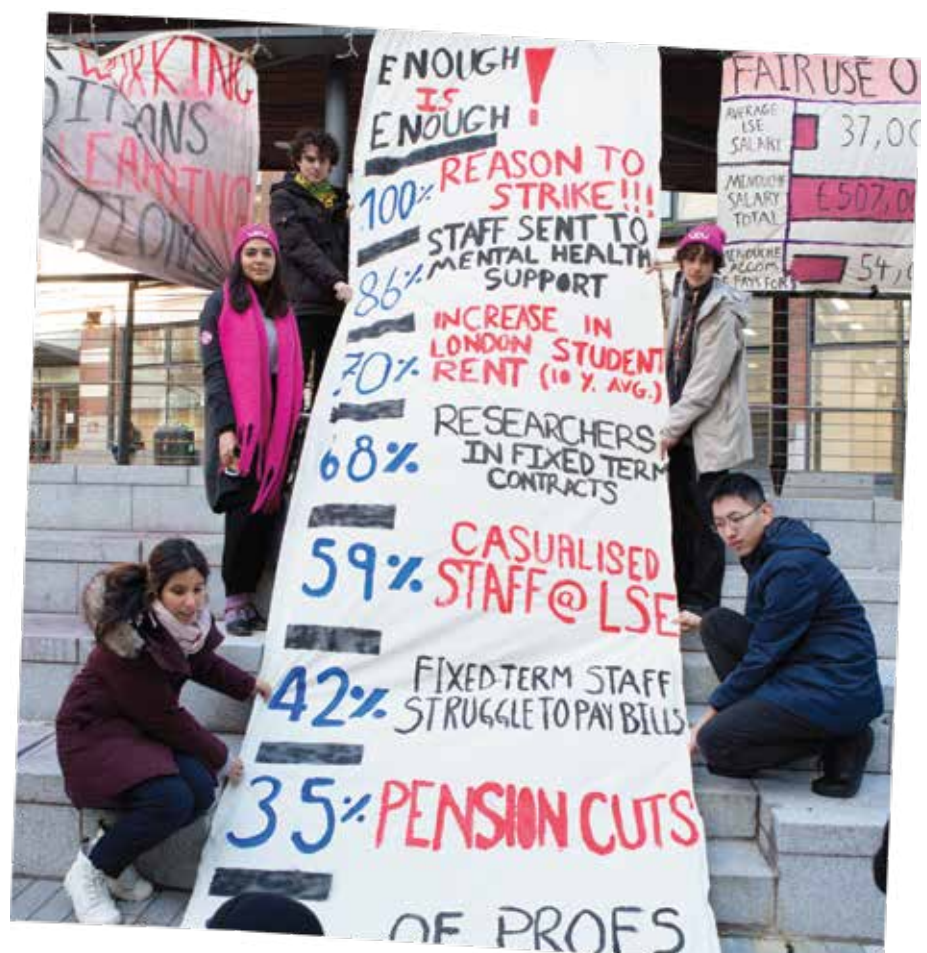 WORKING
ANS
LEARNING
ENOUGH!
IS
ENOUGH
100% REASON TO
STRIKE!!!
86% STAFF SENT TO
MENTAL HEALTH
SUPPORT
70% INCREASE IN
LONDON STUDENT
RENT (10 %. AVG.)
68% RESEARCHERS
IN FIXED TERM
CONTRACTS
59% CASUALISED
STAFF@LSE
42% FIXED TERM STAFF
STRUGGLE TO PAY BILLS
35% PENSION CUTS
OF PROFS
FAIR USE O
AVERAGE
LSE
SALARY
37,00
MINOUCHE
SALARY
TOTAL
£507,0
ACCOM.
PAYS FOR
54,
UCU